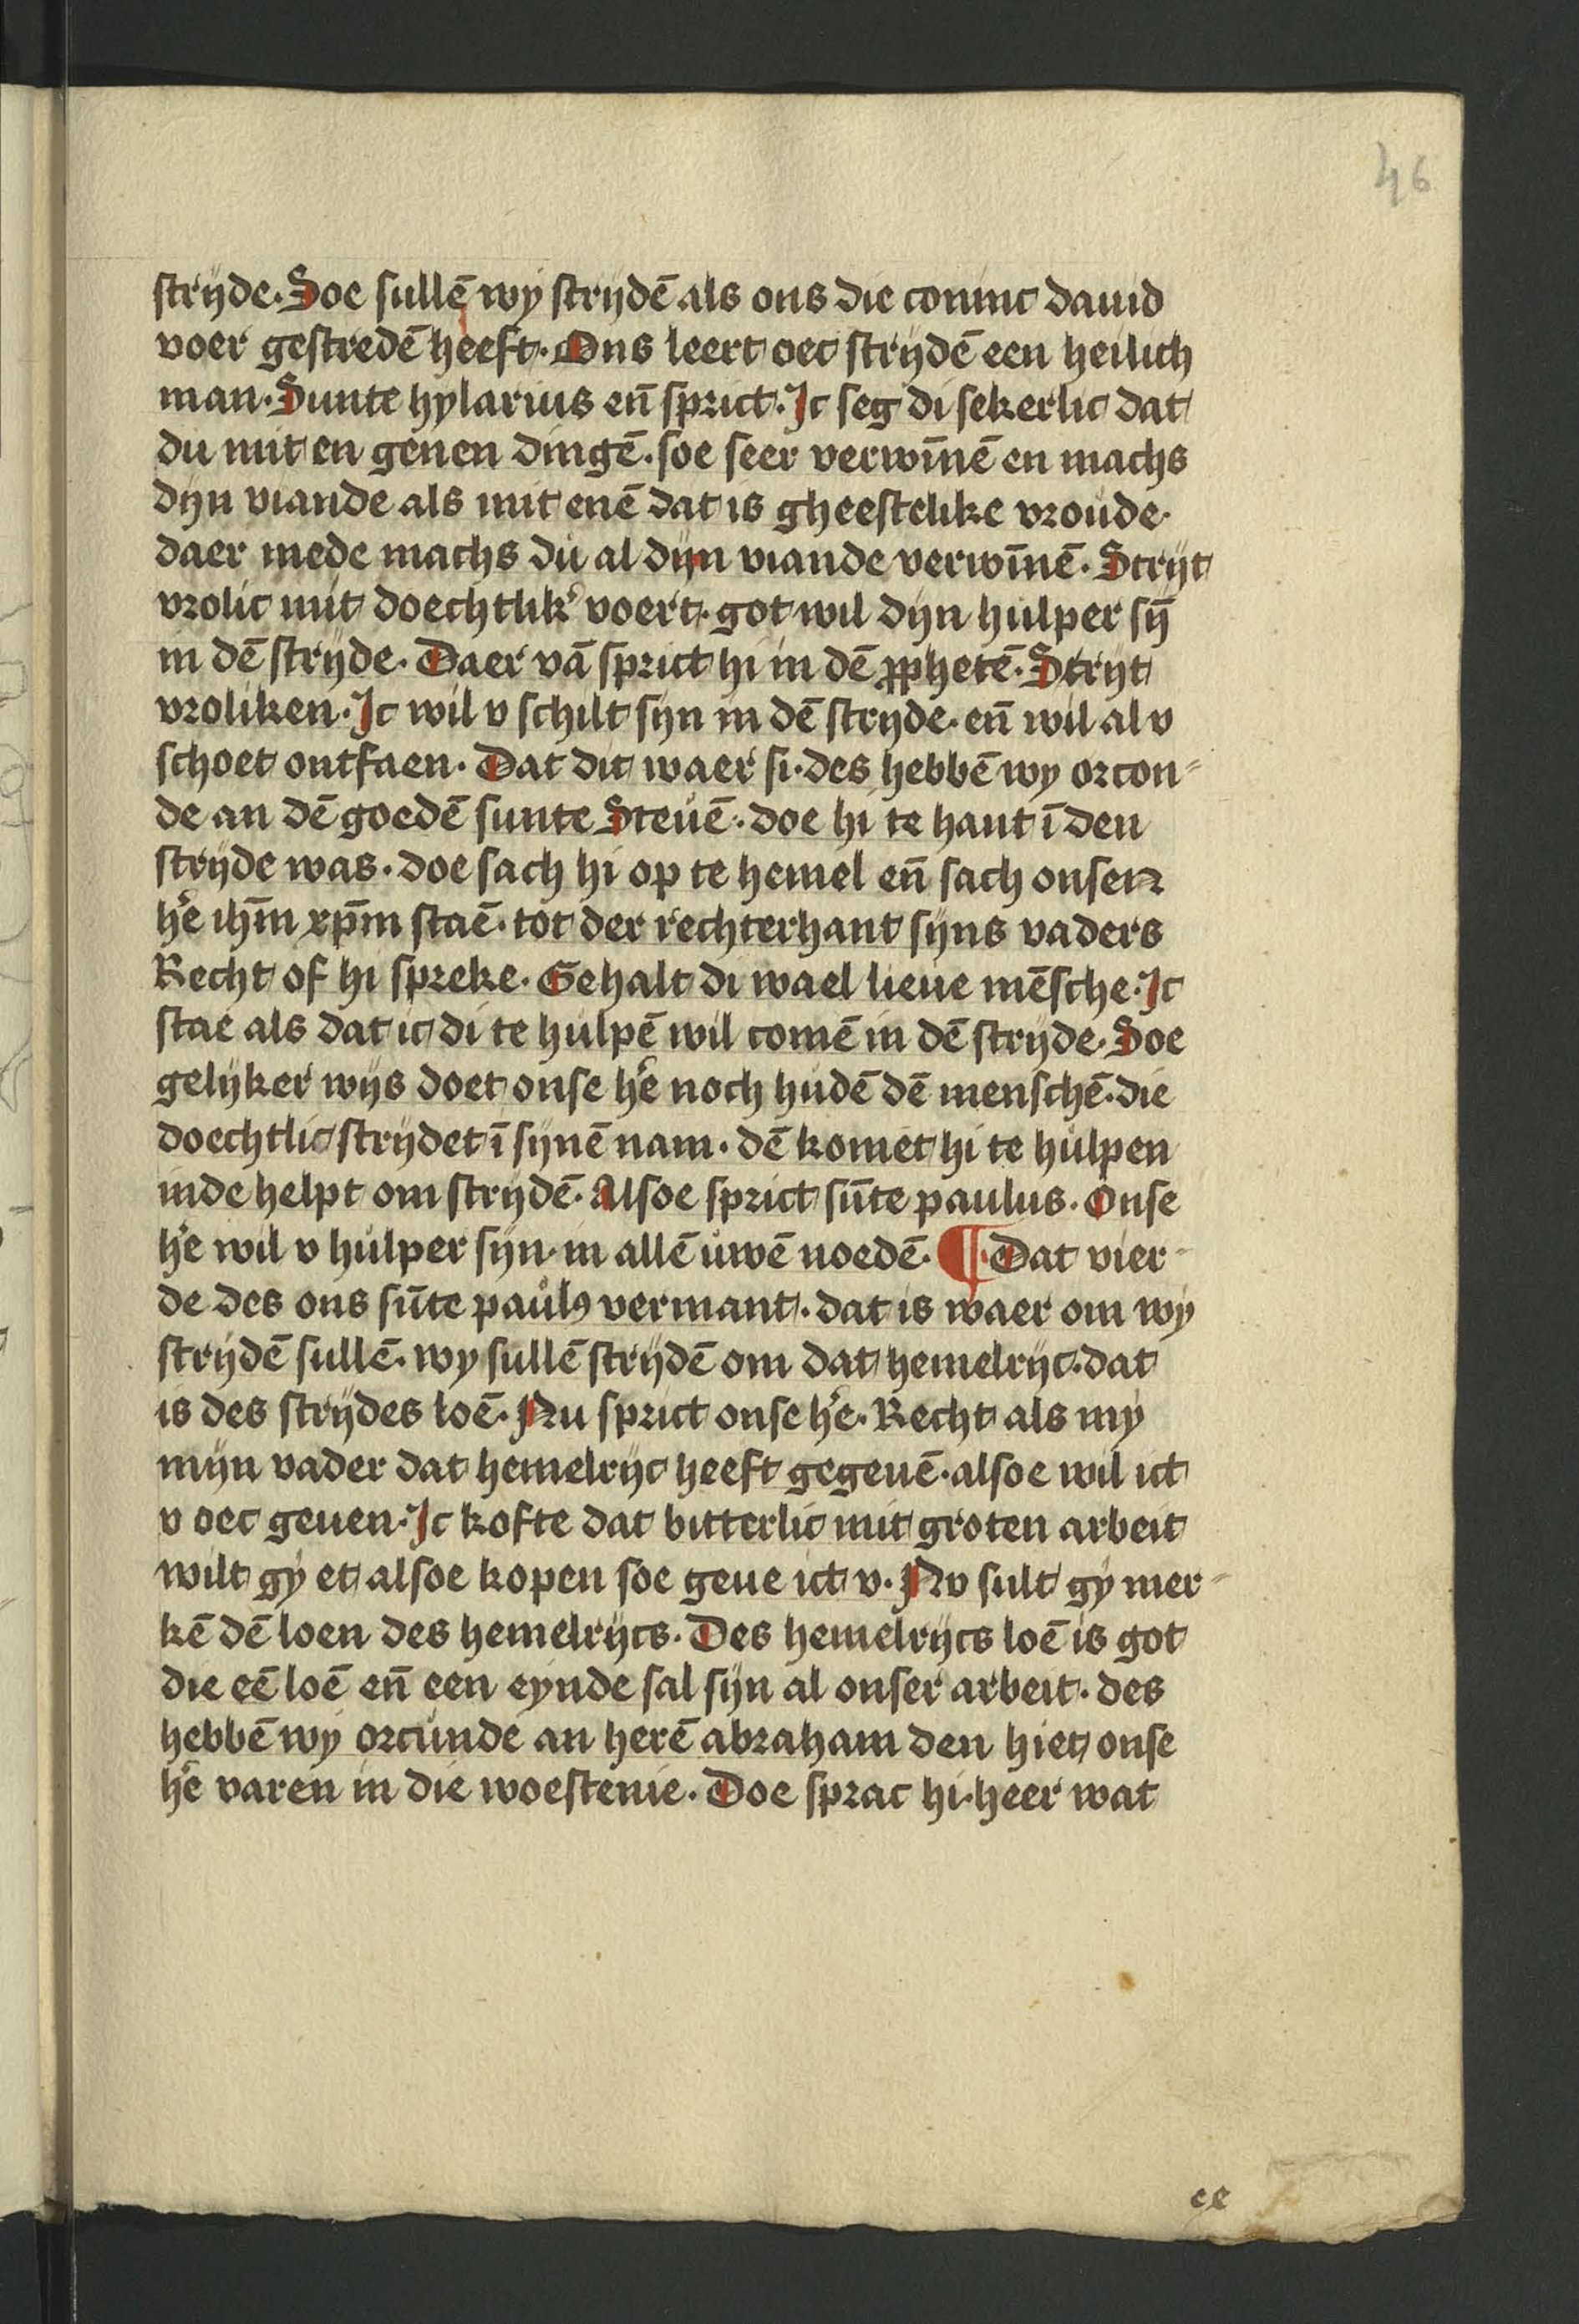 46
strijde. Soe sullē wij strijdē als ons die coninc dauid
voer gestredē heeft. Ons leert oec strijdē een heilich
man. Sunte hylarius en̄ sprict. Ic seg di sekerlic dat
du mit en genen dingē. soe seer verwīnē en machs
dijn viande als mit enē dat is gheestelike vroude.
daer mede machs du al dijn viande verwīnē. Strijt
vrolic mit doechtlikͤ voert. got wil dijn hulper sȳ
in dē strijde. Daer vā sprict hi in dē ꝓphetē. Strijt
vroliken. Ic wil v schilt sijn in dē strijde. en̄ wil al v
schoet ontfaen. Dat dit waer si. des hebbē wy orcon-
de an dē goedē sunte Steuē. doe hi te hant ī den
strijde was. doe sach hi op te hemel en̄ sach onsen
hē ihm̄ xp̄m staē. tot der rechterhant sijns vaders
Recht of hi spreke. Gehalt di wael lieue mēsche. Ic
stae als dat ic di te hulpē wil comē in dē strijde. Soe
gelijker wijs doet onse hē noch hudē dē menschē. die
doechtlic strijdet ī sijnē nam. dē komet hi te hulpen
inde helpt om strijdē. Alsoe sprict sūte paulus. Onse
hē wil v hulper sijn. in allē uwē noedē. ¶. Dat vier-
de des ons sūte paulꝰ vermant. dat is waer om wij
strijdē sullē. wy sullē strijdē om dat hemelrijc. dat
is des strijdes loē. Nu sprict onse hē. Recht als mij
mijn vader dat hemelrijc heeft gegeuē. alsoe wil ict
v oec geuen. Ic kofte dat bitterlic mit groten arbeit
wilt gij et alsoe kopen soe geue ict v. Nv sult gij mer-
kē dē loen des hemelrijcs. Des hemelrijcs loē is got
die eē loē en̄ een eynde sal sijn al onser arbeit. des
hebbē wij orcunde an herē abraham den hiet onse
hē varen in die woestenie. Doe sprac hi. heer wat